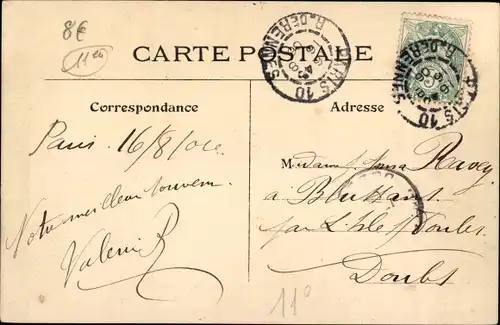 8€
11en
CARTE POSTALE
PARIS 10
R. DE RENNES
PARIS 10
R. DE RENNES
Correspondance
Adresse
Paris 16/8/04
Notre meilleur souvenir
Valerie R
Madame Ravey
à Blussans
par L'Isle s/ Doubs
Doubs
11°